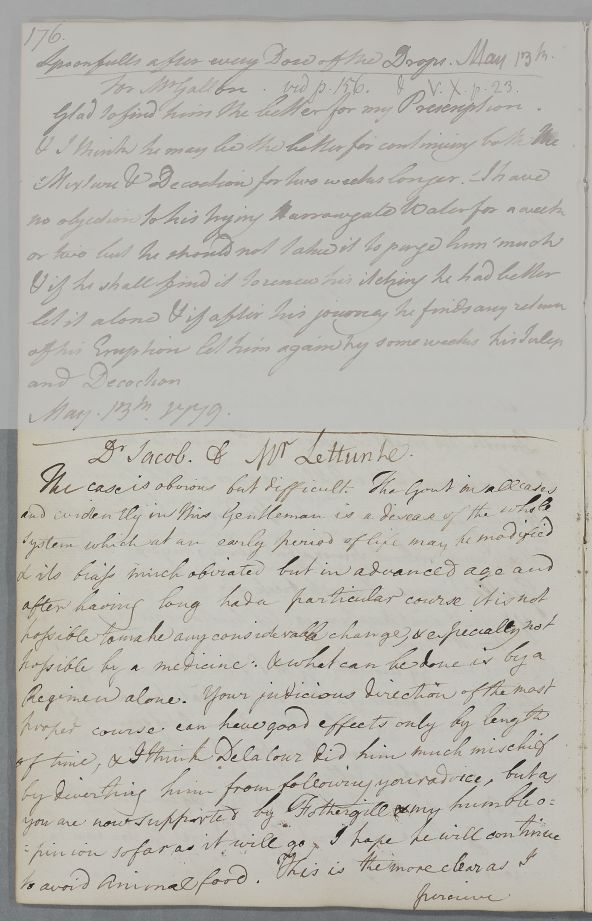 176.
Spoonfulls after every Dose of the Drops. May 13th.
For Mr Galton. vid p. 156. & V. X. p. 23.
Glad to find him the better for my Prescription.
& I think he may be the better for continuing both the
Mixture & Decoction for two weeks longer. I have
no objection to his trying Harrowgate Water for a week
or two but he should not take it to purge him much
& if he shall find it to renew his itching he had better
let it alone & if after his journey he finds any return
of his Eruption let him again try some weeks his Julep
and Decoction
May. 13th. 1779.
Dr Jacob. & Mr
The case is obvious but difficult. The Gout in all cases
and evidently in this Gentleman is a disease of the whole
System which at an early period of life may be modified
& its biass much obviated but in advanced age and
after having long had a particular course it is not
possible to make any considerable change, & especially not
possible by a medicine: & what can be done is by a
Regimen alone. Your judicious direction of the most
proper course can have good effects only by length
of time, & I think Delatour did him much mischief
by diverting him from following your advice, but as
you are now supported by Fothergill & my humble o=
=pinion so far as it will go, I hope he will continue
to avoid Animal food. This is the more clear as I
perceive